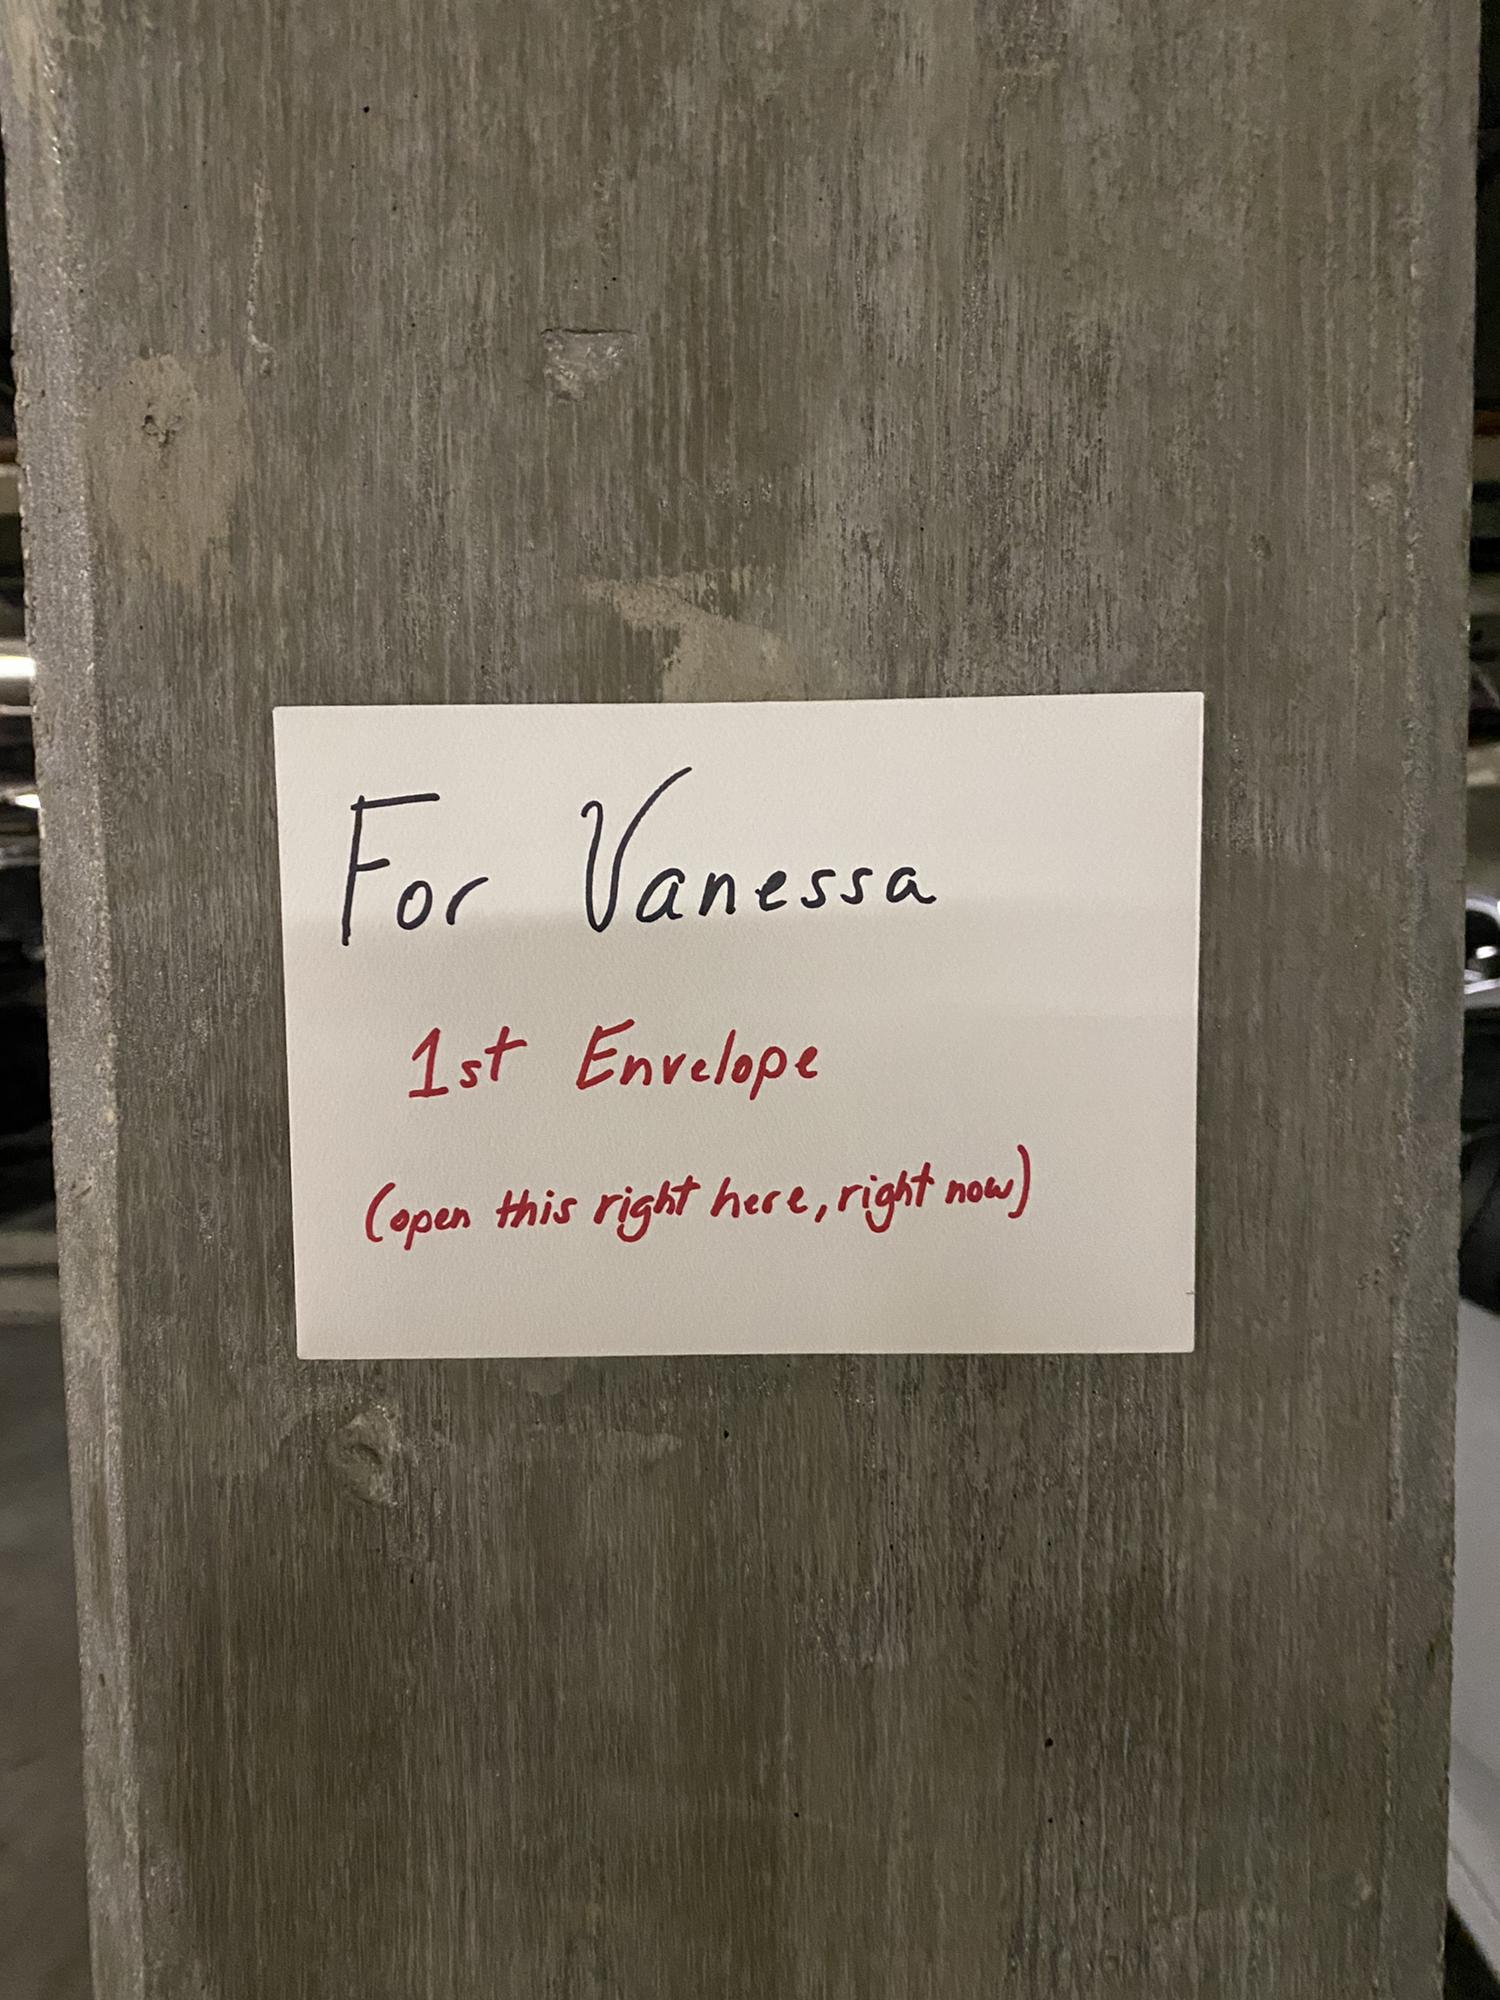 For Vanessa
1st Envelope
(open this right here, right now)